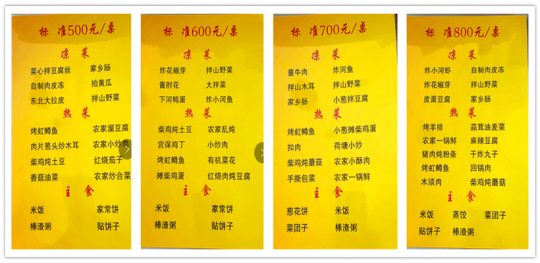 标 准500元/桌
凉 菜
菜心拌豆腐丝 家乡肠
自制肉皮冻 拍黄瓜
东北大拉皮 拌山野菜
热 菜
烤虹鳟鱼 农家溜豆腐
肉片葱头炒木耳 农家小炒肉
柴鸡炖土豆 红烧茄子
香菇油菜 农家炒合菜
主 食
米饭 家常饼
棒渣粥 贴饼子
标 准600元/桌
凉 菜
炸花椒芽 拌山野菜
酱肘花 大拌菜
下河鸭蛋 炸小河鱼
热 菜
柴鸡炖土豆 农家乱炖
宫保鸡丁 小炒肉
烤虹鳟鱼 有机菜花
摊柴鸡蛋 红烧肉炖豆腐
主 食
米饭 家常饼
棒渣粥 贴饼子
标 准700元/桌
凉 菜
酱牛肉 炸河鱼
拌山木耳 拌山野菜
家乡肠 小葱拌豆腐
热 菜
烤虹鳟鱼 小葱摊柴鸡蛋
扣肉 荷塘小炒
柴鸡炖蘑菇 农家小酥肉
手撕包菜 农家一锅鲜
主 食
葱花饼 米饭
菜团子 棒渣粥
标 准800元/桌
凉 菜
炸小河虾 自制肉皮冻
炸花椒芽 拌山野菜
皮蛋豆腐 家乡肠
热 菜
烤羊排 蒜茸油麦菜
农家一锅鲜 麻辣豆腐
猪肉炖粉条 干炸丸子
烤虹鳟鱼 回锅肉
木须肉 柴鸡炖蘑菇
主 食
米饭 蒸饺 菜团子
贴饼子 棒渣粥